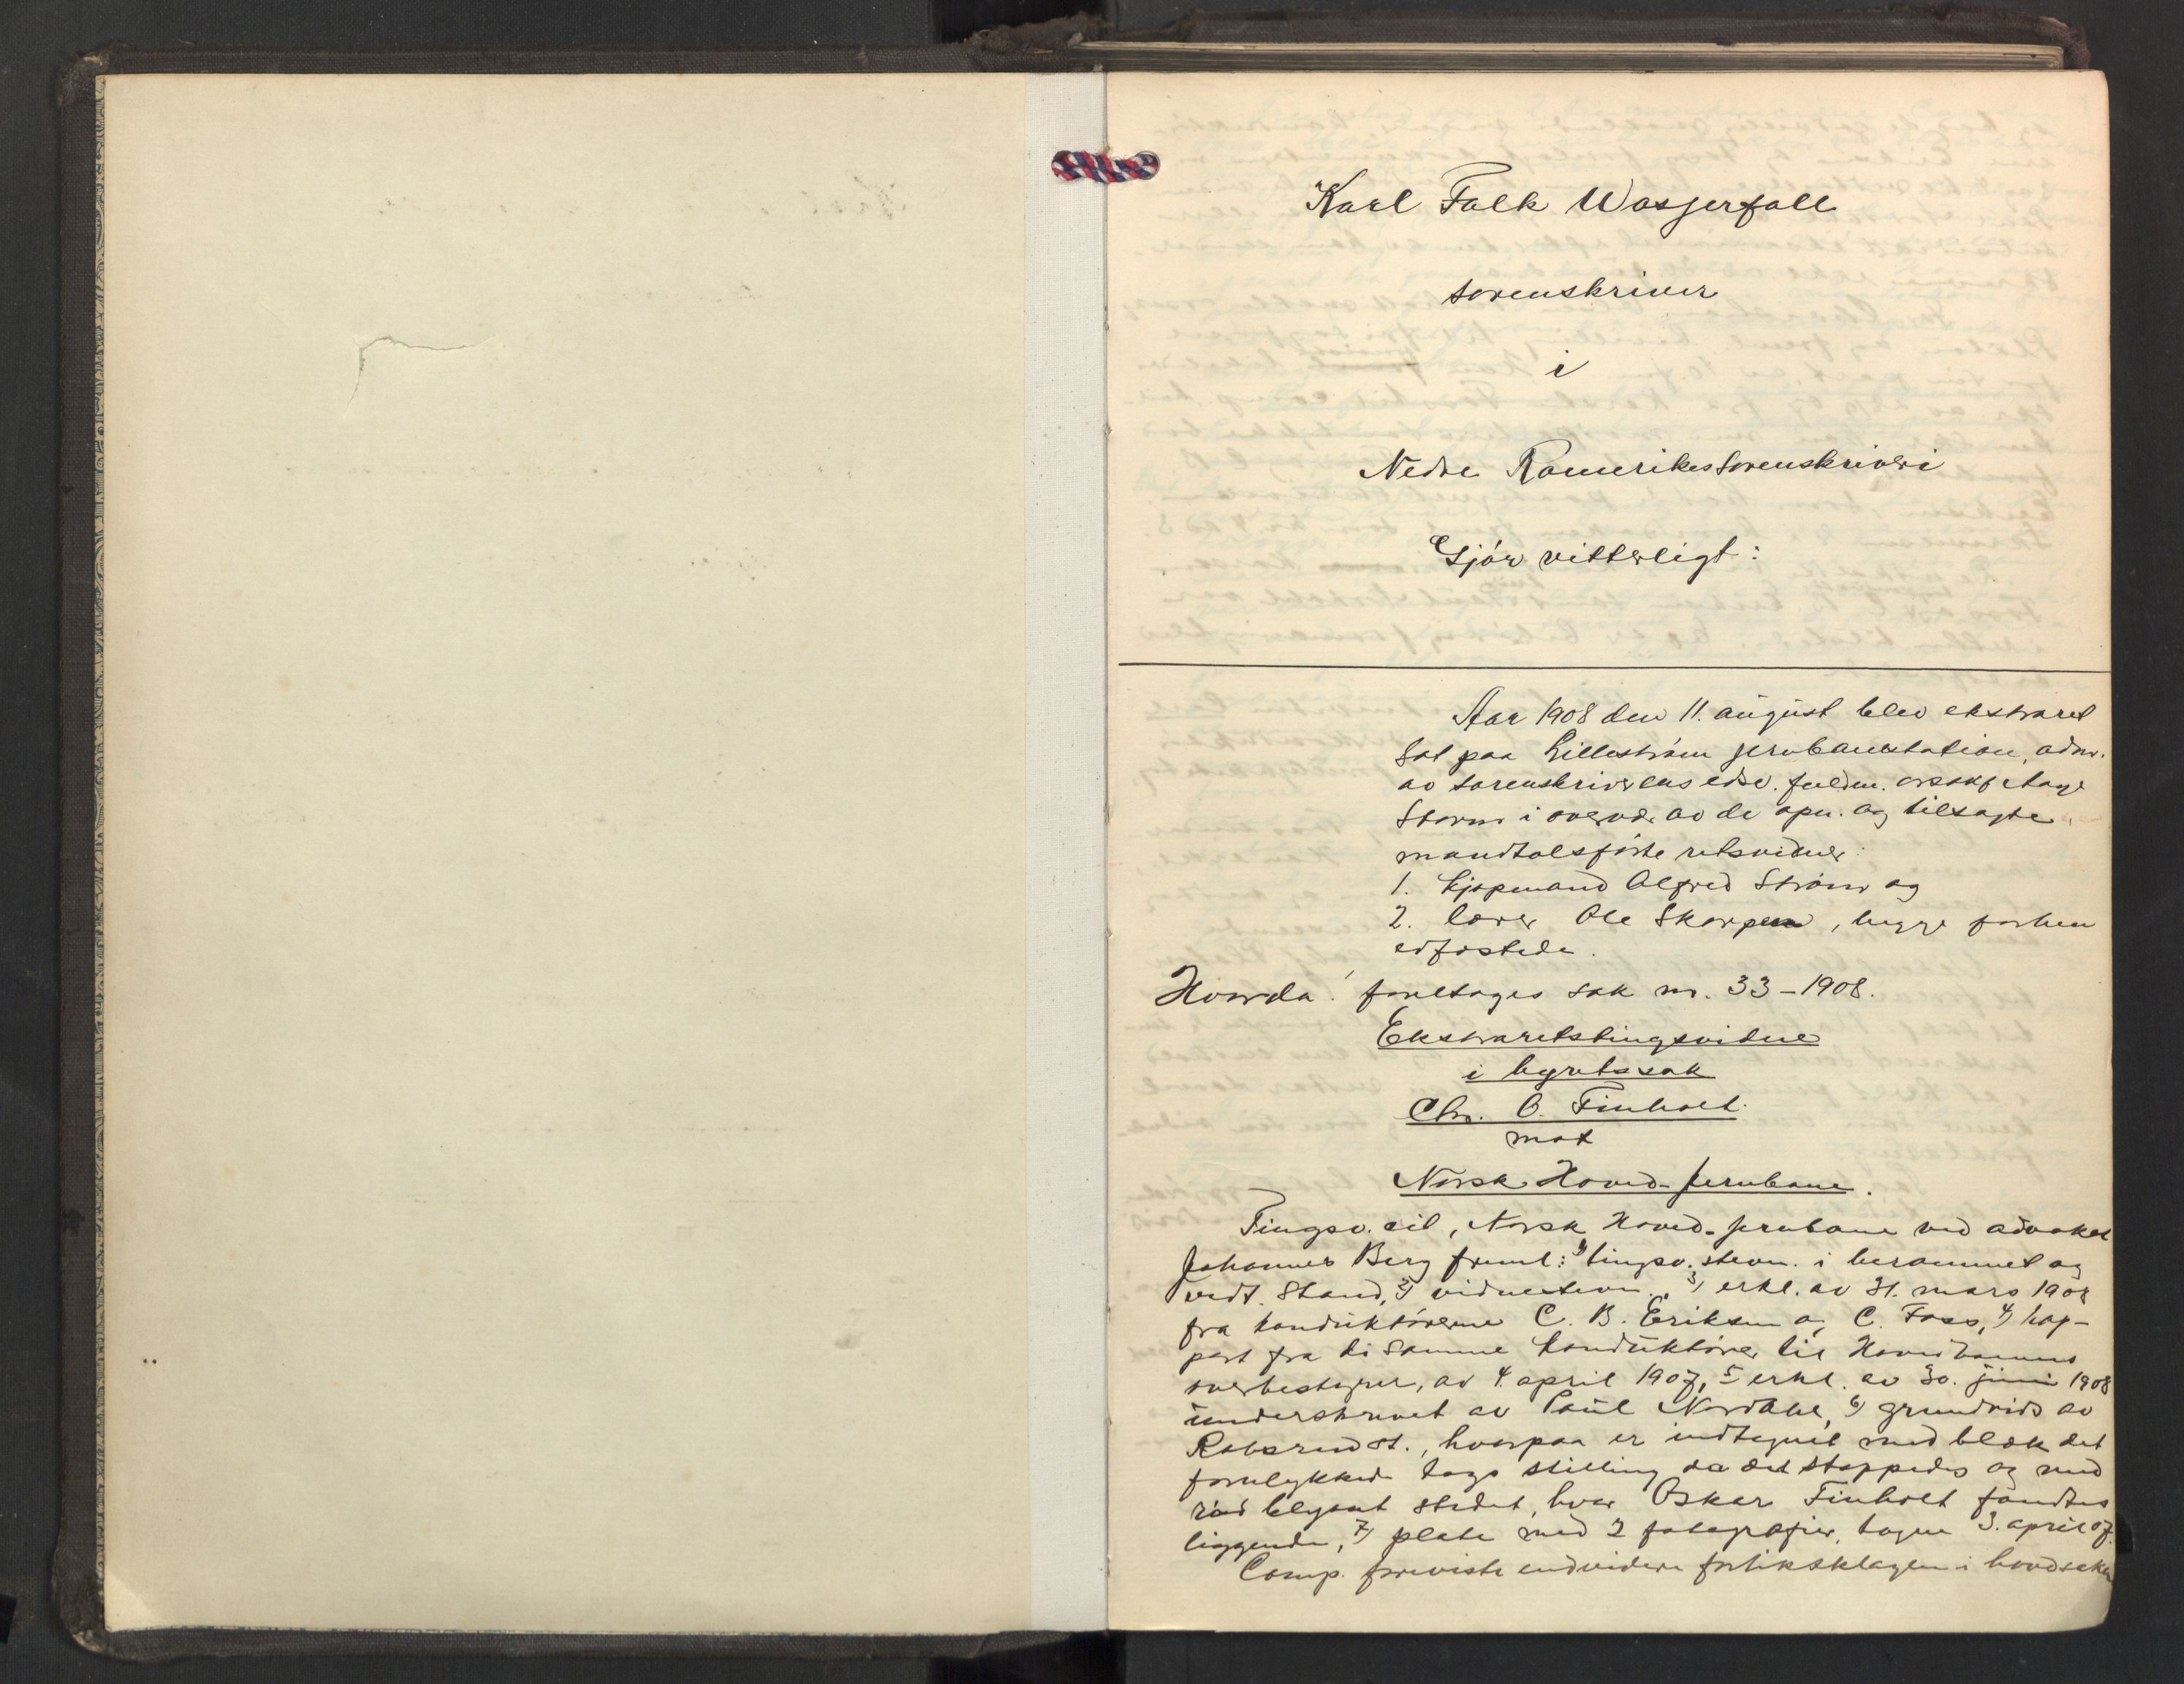 Karl Falk Wasserfall
sorenskriver
i
Nedre Romerikes sorenskriveri
Gjör vitterligt:
Aar 1908 den 11. august blev ekstraret
sat paa Lilleström jernbanestation, adm.
av sorenskriverens edsv. fuldm. Aage
Storm i overvær av de opn. og tilsagte
mandtalsförte retsvidner:
1. kjøpmand Alfred Ström og
2. lærer Ole Skarpen, begge forhen
edfæstede.
Hvorda! foretages sak nr. 33-1908.
Ekstraretstingsvidne
i byretssak
Chr. O. Finholt
mot
Norsk Hoved-Jernbane.
Tingsv. cit, Norsk Hoved-Jernbane ved advokat
Johannes Berg freml: 1) tingsv. stevn. i berammet og
vedt. Stand, 2) vidnestevn., 3) erkl. av 31. mars 1908
fra konduktörerne C. B. Eriksen og C. Foss, 4) rap-
port fra de samme konduktörer til Hovedbanens
overbestyrer, av 4. april 1907, 5 erkl. av 30. juni 1908
underskrevet av Paul Nordahl, 6) grundrids av
st., hvorpaa er indtegnet med blæk det
forulykkede togs stilling da det stoppedes og med
röd blyant stedet, hvor Oskar Finholt fandtes
liggende, 7) plate med 2 fotografier, tagne 3. april 07.
Comp. foreviste endvidere forliksklagen i hovdsaken